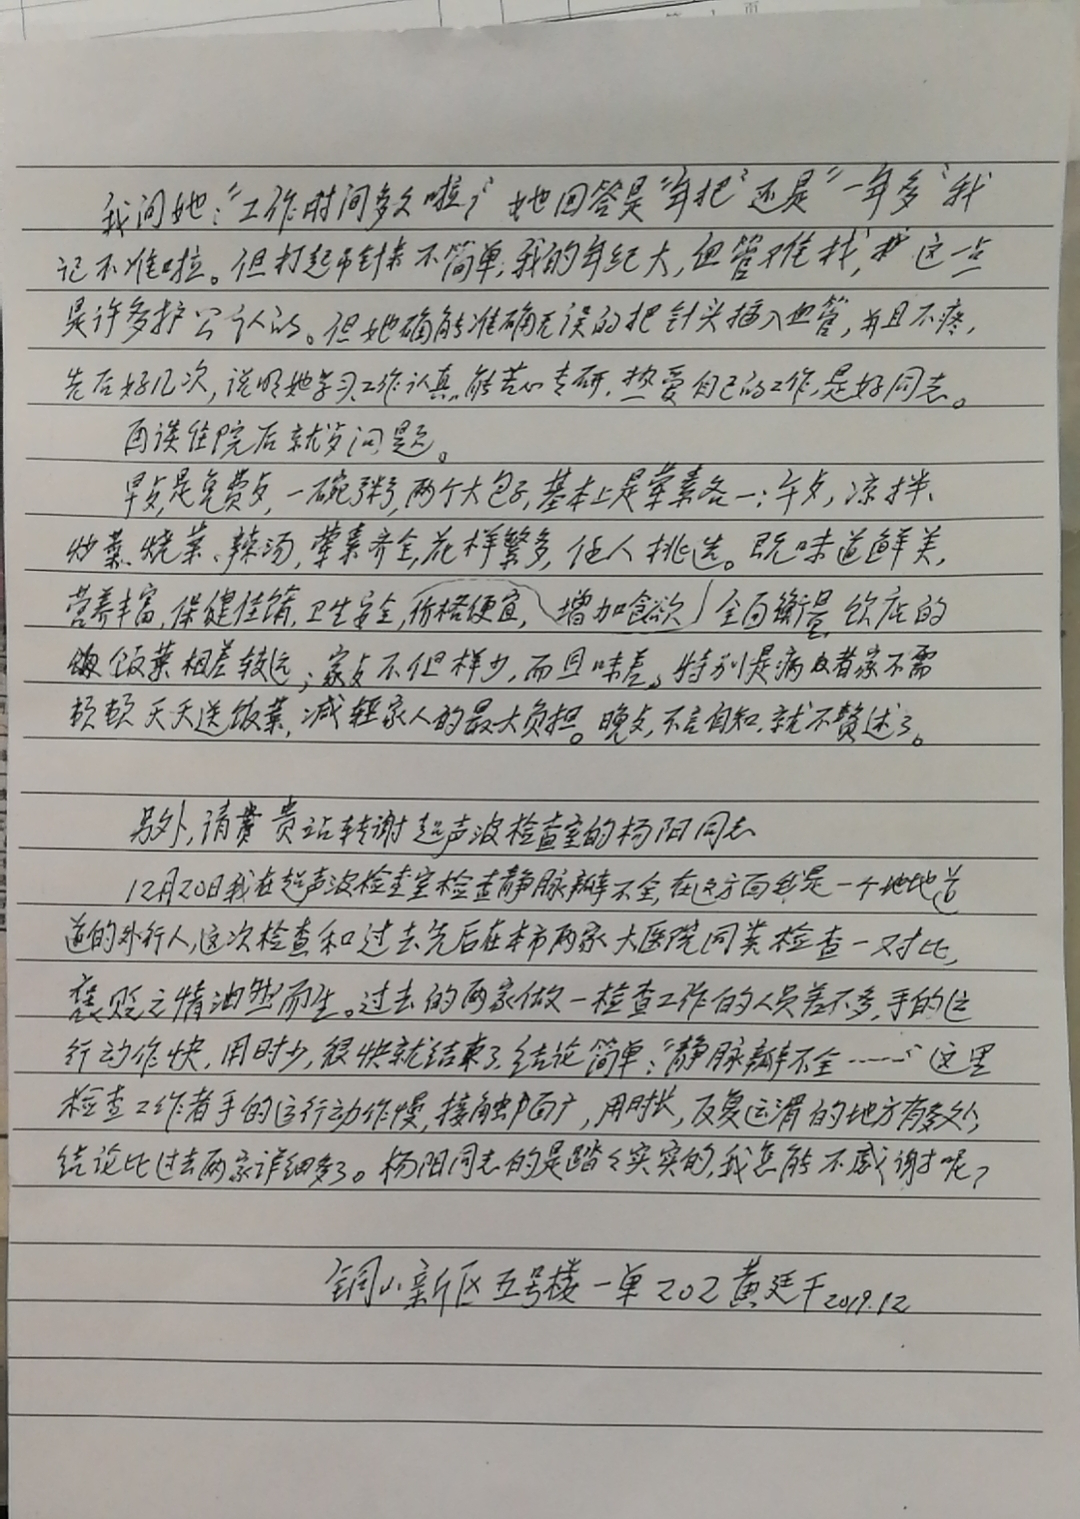 我问她:“工作时间多久啦?”她回答是“年把”还是“一年多”我
记不准啦。但打起吊针来不简单,我的年纪大,血管难找,这一点
是许多护公认的。但她确能准确无误的把针头插入血管,并且不疼,
先后好几次,说明她学习工作认真,能苦心专研,热爱自己的工作,是好同志。
再谈住院后就歺问题。
早歺是免费歺,一碗粥,两个大包子,基本上是荤素各一;午歺,凉拌、
炒菜、烧菜、辣汤,荤素齐全,花样繁多,任人挑选。既味道鲜美,
营养丰富,保健佳餚,卫生安全,价格便宜,增加食欲,全面衡量,饮店的
饭菜相差较远;家歺不但样少,而且味差。特别是病者家不需
顿顿天天送饭菜,减轻家人的最大负担。晚歺,不言自知,就不赘述了。
另外,请贵站转谢超声波检查室的杨阳同志
12月20日我在超声波检查室检查静脉瓣不全,在这方面我是一个地地道
道的外行人,这次检查和过去先后在本市两家大医院同类检查一对比,
褒贬之情油然而生。过去的两家做一检查工作的人员差不多,手的运
行动作快,用时少,很快就结束了,结论简单:“静脉瓣不全……”这里
检查工作者手的运行动作慢,接触面广,用时长,反复运滑的地方有多处,
结论比过去两家详细多了。杨阳同志的是踏々实实的,我怎能不感谢呢?
铜山新区五号楼一单202黄廷干2019.12